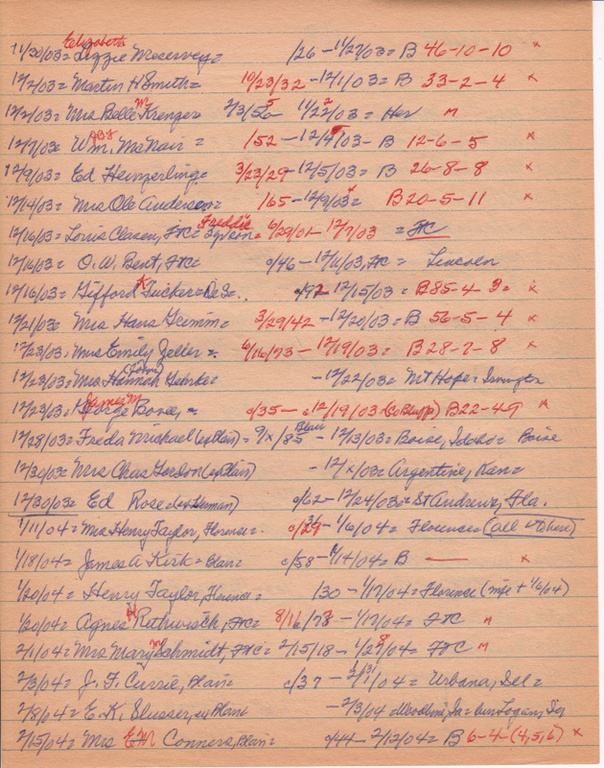 Elizabeth
11/30/03 = Lizzie Meservey = /26 - 11/27/03 = B 46-10-10 x
12/2/03 = Martin H Smith = 10/23/32 - 12/1/03 = B 33-2-4 x
12/2/03 = Mrs Belle M Krenger 2/3/56 11/22/03 = Her m
12/7/03 = Wm. McNair = /52 - 12/4/03 - B 12-6-5 x
12/9/03 = Ed Heimerling = 3/23/29 - 12/5/03 = B 26-8-8 x
12/14/03 = Mrs Ole Anderson = /65 - 12/9/03 = B 20-5-11 x
Freddie
12/16/03 = Louis Clasen, FtC = 6/29/01 - 12/7/03 = FtC
12/16/03 = O.W. Bent, FtC = c/46 - 12/11/03, FtC = Lincoln
12/16/03 = Gifford K Tucker = D.S. c/92 - 12/15/03 = B 85-4 x
12/21/03 = Mrs Hans Grimm = 3/29/42 - 12/20/03 = B 56-5-4 x
12/23/03 = Mrs Emily Zeller = 6/16/73 - 12/19/03 = B 28-7-8 x
(John)
12/23/03 = Mrs Hannah Gehrke = - 12/22/03 = Mt Hope = Irvington
James M
12/23/03 = George Bovee, = c/35 - c 12/19/03 (Co Supp) B 22-49 x
12/28/03 = Freda Michael (ex Blair) = 9/x/85 Blair - 12/13/03 = Boise, Idaho = Boise
12/30/03 = Mrs Chas Gordon (ex Blair) - 12/x/03 = Argentine, Kan =
12/30/03 = Ed Rose (ex Herman) c/62 - 12/24/03 = St Andrews, Fla.
1/11/04 = Mrs Henry Taylor, Florence = c/29 - 1/6/04 = Florence
1/18/04 = James A Kirk = Blair = c/58 - 1/14/04 = B — x
1/20/04 = Henry Taylor, Florence = /30 - 1/17/04 = Florence (wife + 1/6/04)
1/20/04 = Agnes Ruthwisch, FtC = 8/16/78 - 1/17/04 = FtC m
2/1/04 = Mrs Mary m Schmidt, FtC = 2/15/18 - 1/28/04 = FtC m
2/3/04 = J. F. Currie, Blair = c/37 - 2/1/04 = Urbana, Ill =
2/8/04 = E. K. Slusser, ex Blair - 2/3/04 Woodbine, Ia = bur Logan, Ia
2/15/04 = Mrs EM Conners, Blair = c/44 - 2/12/04 = B 6-4-(4,5,6) x